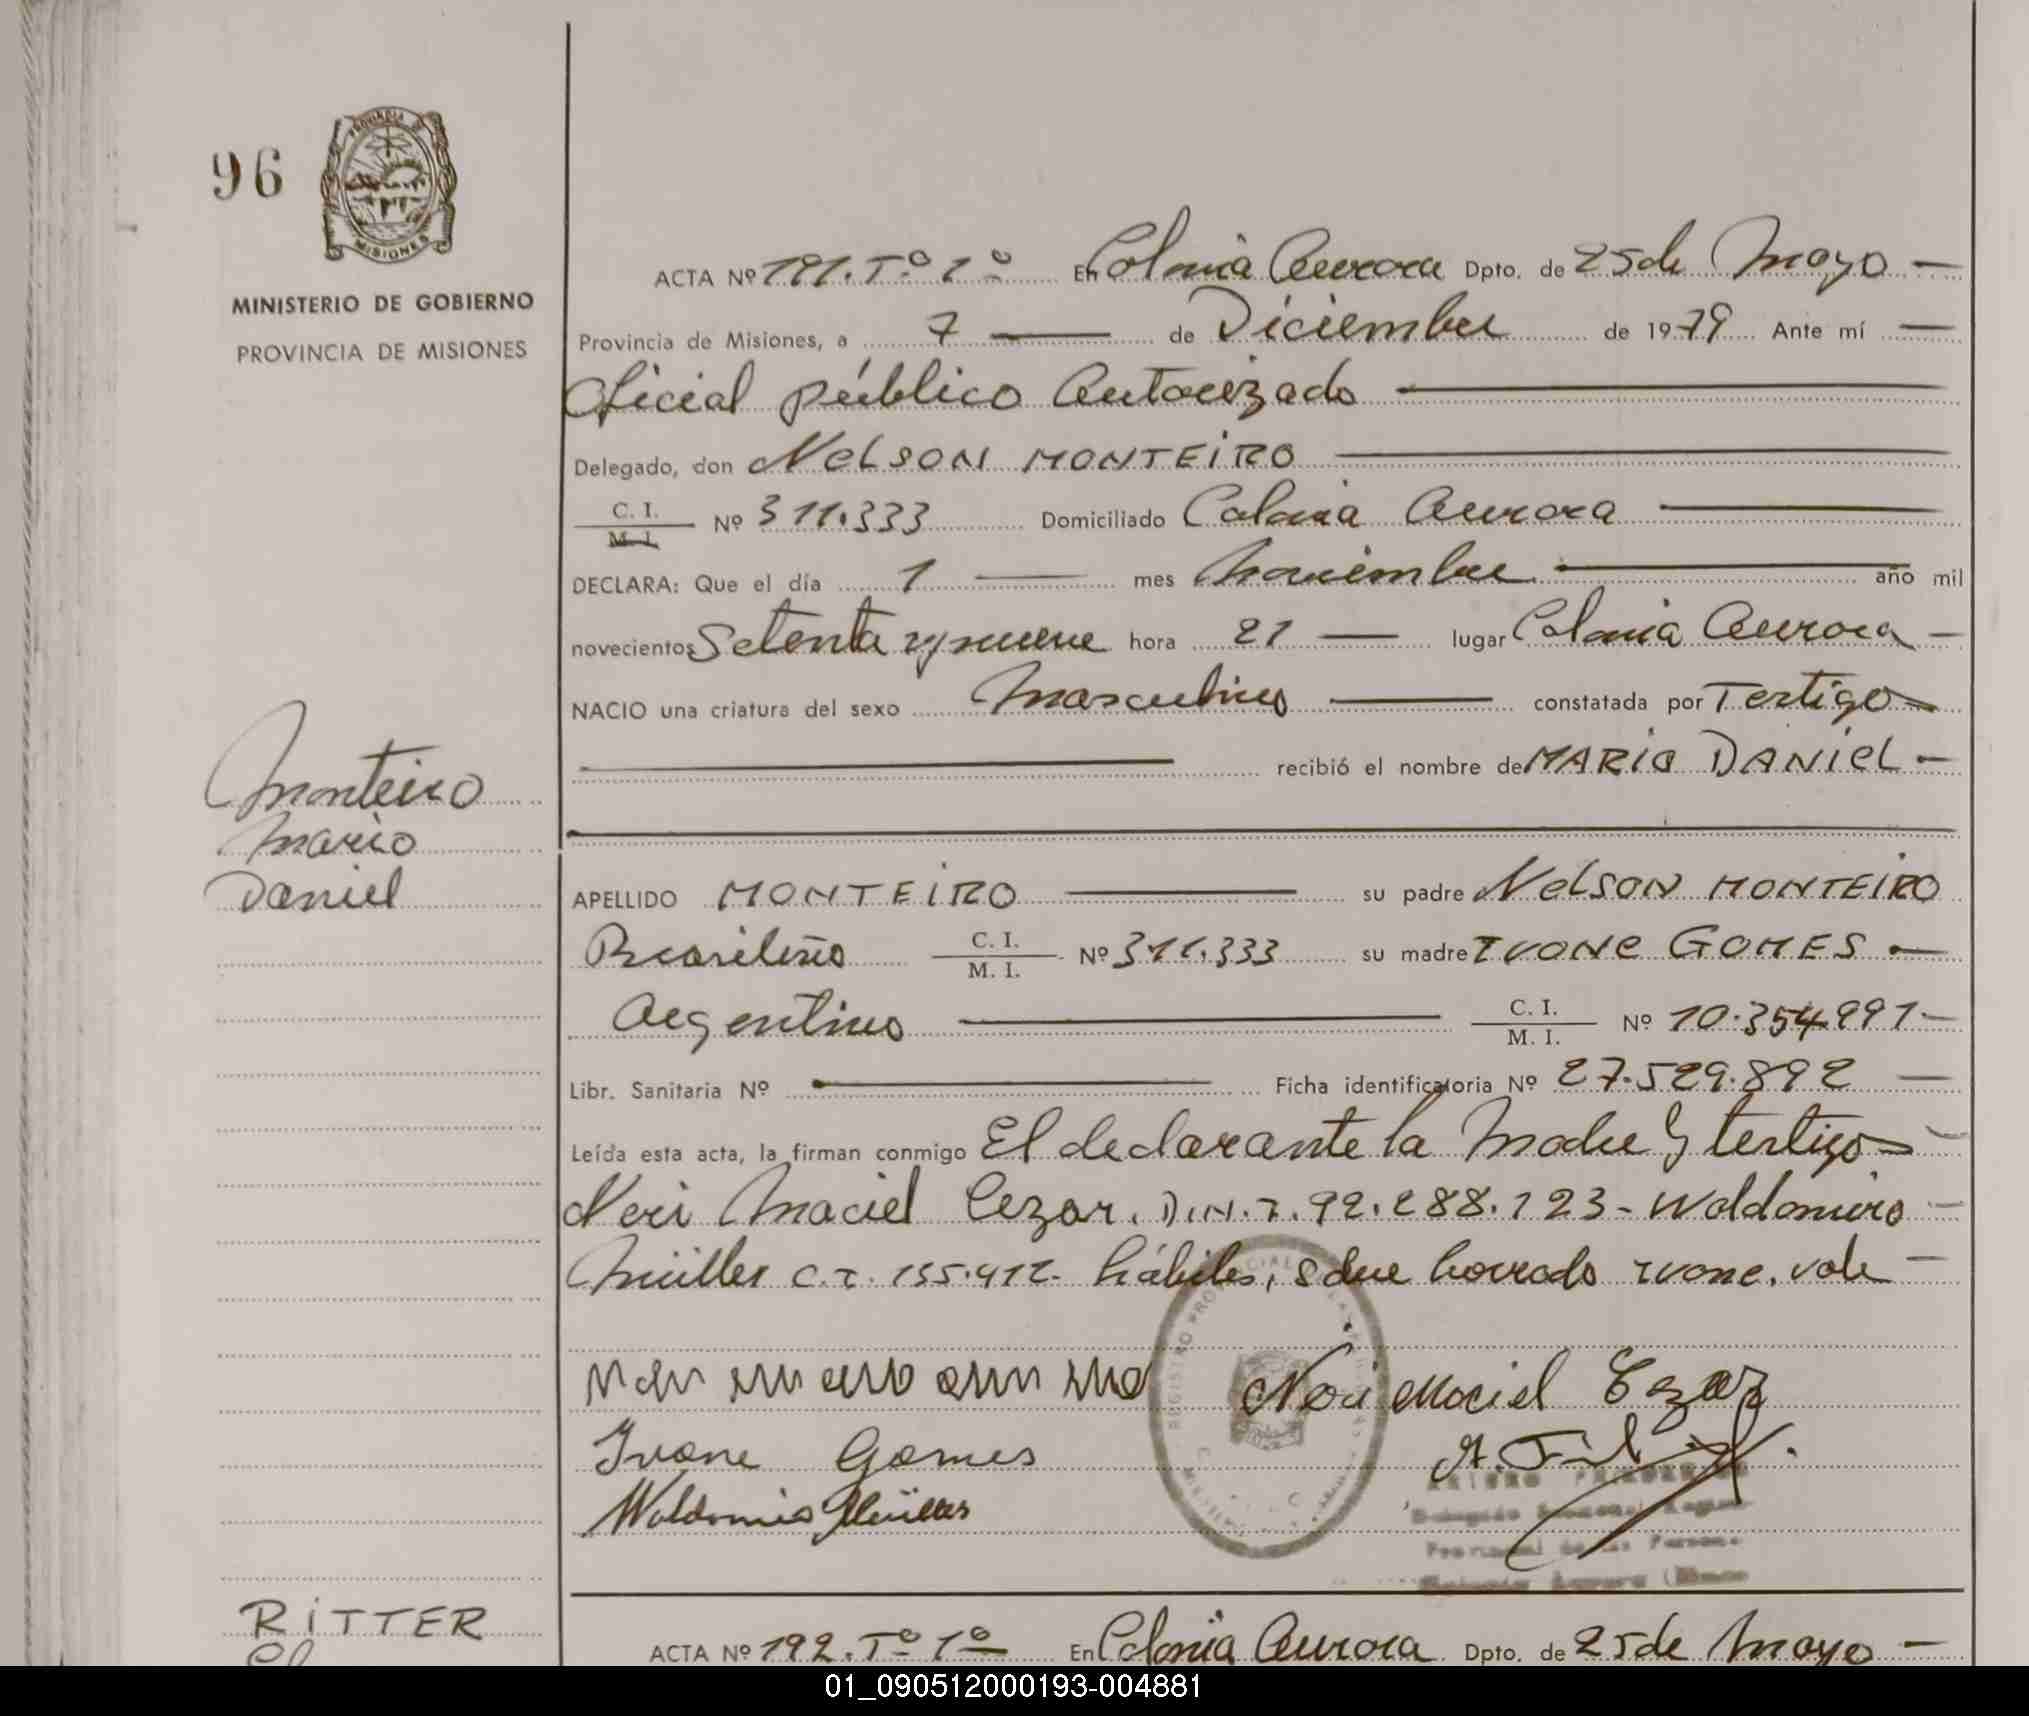 96
PROVINCIA DE
MISIONES
MINISTERIO DE GOBIERNO
PROVINCIA DE MISIONES
ACTA Nº 191. Tº 1º En Colonia Aurora Dpto. de 25 de Mayo —
Provincia de Misiones, a 7 — de Diciembre de 1979 Ante mí —
Oficial público Autorizado —
Delegado, don NELSON MONTEIRO —
C. I.
M. I. Nº 311.333 Domiciliado Colonia Aurora —
DECLARA: Que el día 1 — mes Noviembre — año mil
novecientos Setenta y nueve hora 21 — lugar Colonia Aurora —
NACIO una criatura del sexo Masculino — constatada por Testigo —
— recibió el nombre de MARIO DANIEL —
Monteiro
Mario
Daniel
APELLIDO MONTEIRO — su padre NELSON MONTEIRO
Brasileño C. I.
M. I. Nº 311.333 su madre IVONE GOMES —
Argentino — C. I.
M. I. Nº 10.354.991 —
Libr. Sanitaria Nº — Ficha identificatoria Nº 27.529.892 —
Leída esta acta, la firman conmigo El declarante la Madre y testigo —
Neri Maciel Cezar. D.N.I. 92.288.123 - Waldomiro —
Müller C.I. 155.412. hábiles, sobre borrado Ivone. vale —
Neri Maciel Cezar
Ivone Gomes
Waldomiro Müller
RITTER
ACTA Nº 192. Tº 1º En Colonia Aurora Dpto. de 25 de Mayo —
01_090512000193-004881